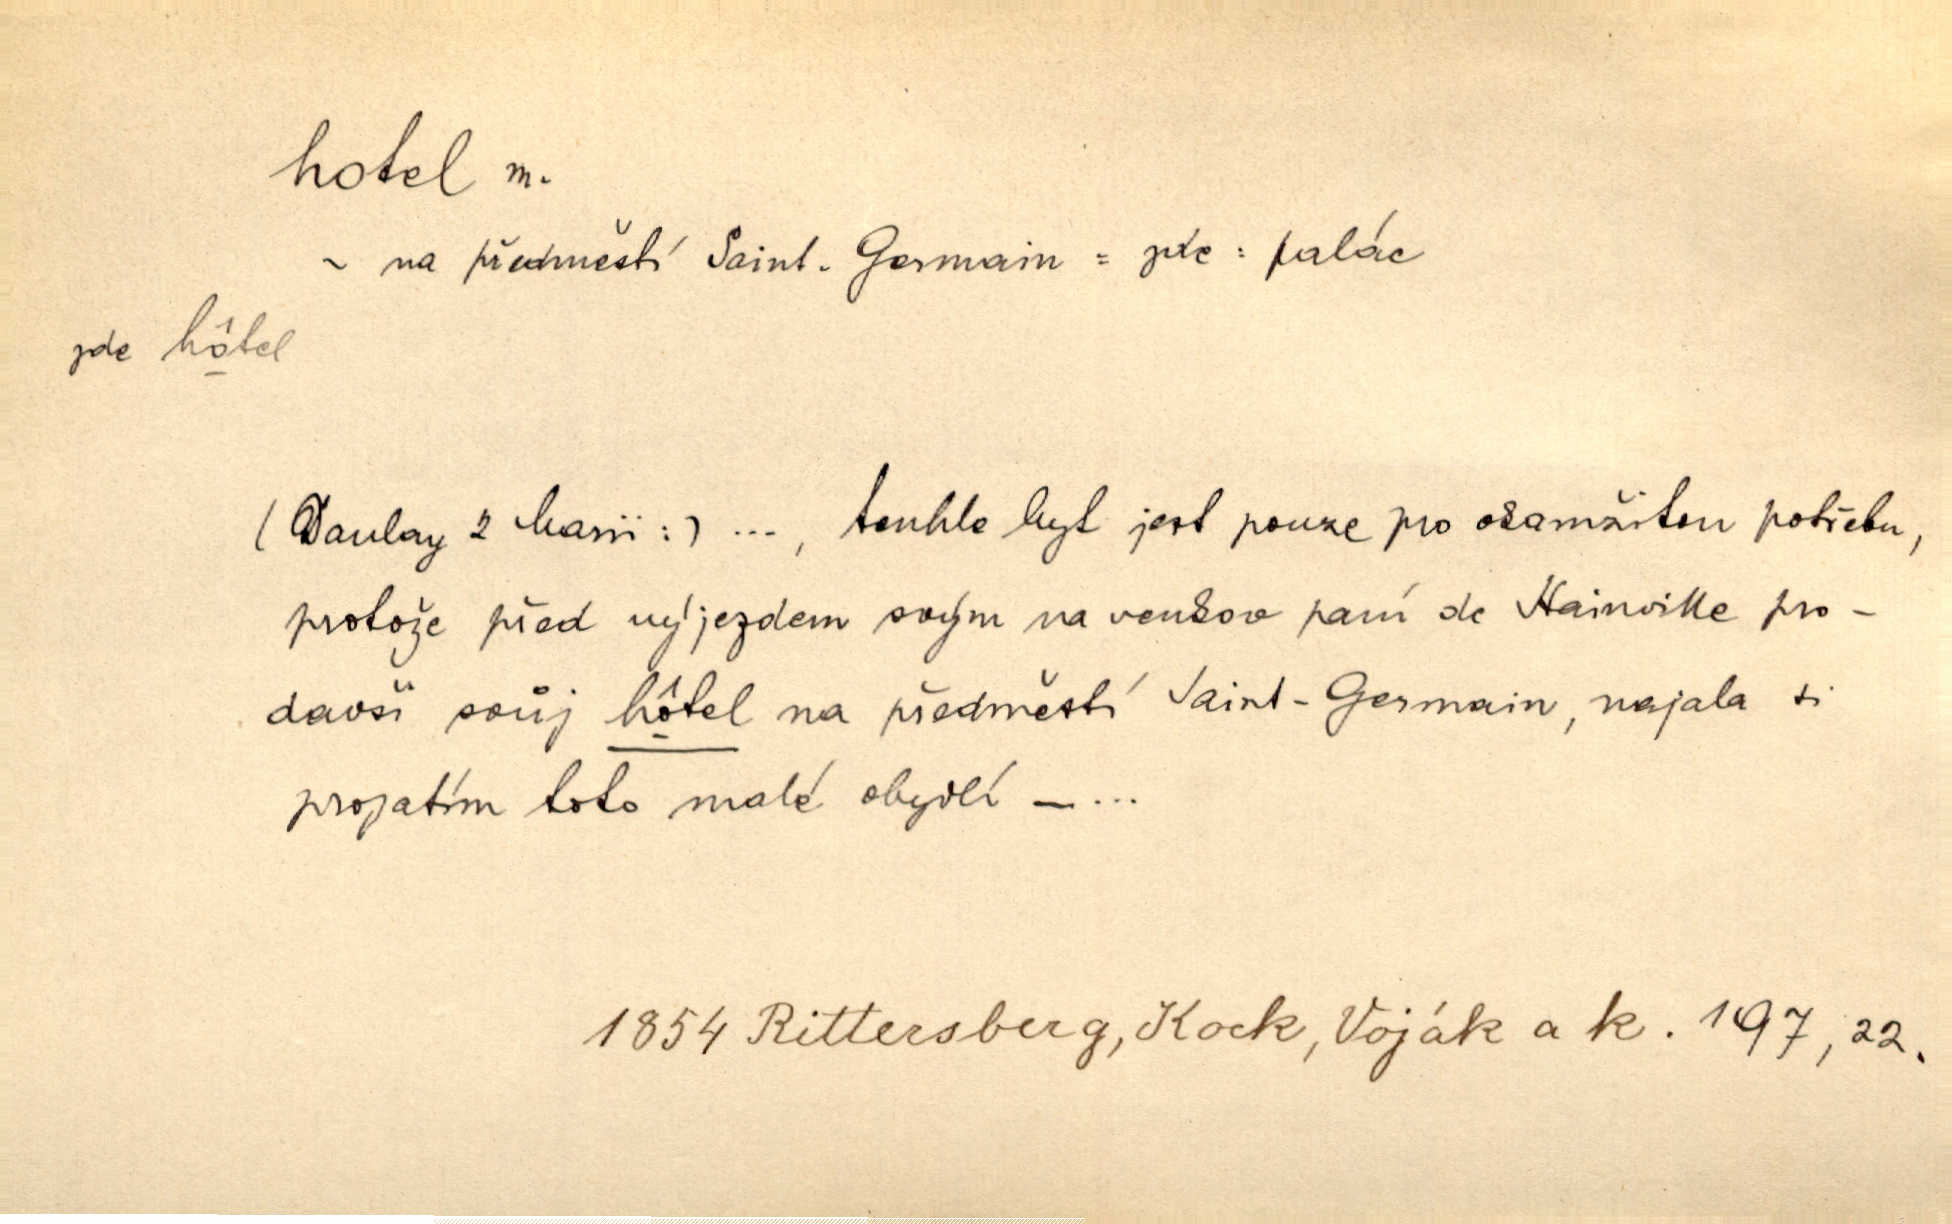 hotel m.
~ na předměstí Saint-Germain = zde: palác
zde hôtel
(Daulay 2 :) ..., tenhle byt jest pouze pro okamžitou potřebu,
protože před výjezdem svým na venkov paní de Hainville pro-
davši svůj hôtel na předměstí Saint-Germain, najala si
prozatím toto malé obydlí — ...
1854 Rittersberg, Kock, Voják a k. 197, 22.